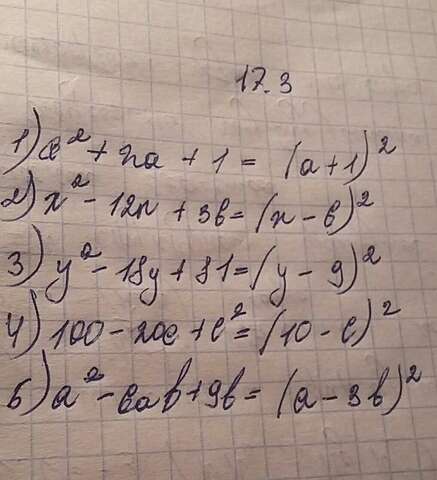 17.3
1) a² + 2a + 1 = (a+1)²
2) x² - 12x + 36 = (x - 6)²
3) y² - 18y + 81 = (y - 9)²
4) 100 - 20c + c² = (10 - c)²
5) a² - 6ab + 9b = (a - 3b)²